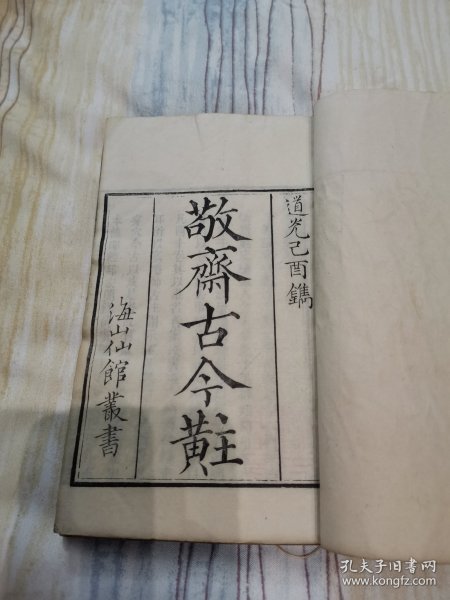 道光己酉鐫
敬齋古今黈
海山仙館叢書
孔夫子旧书网
www.kongfz.com